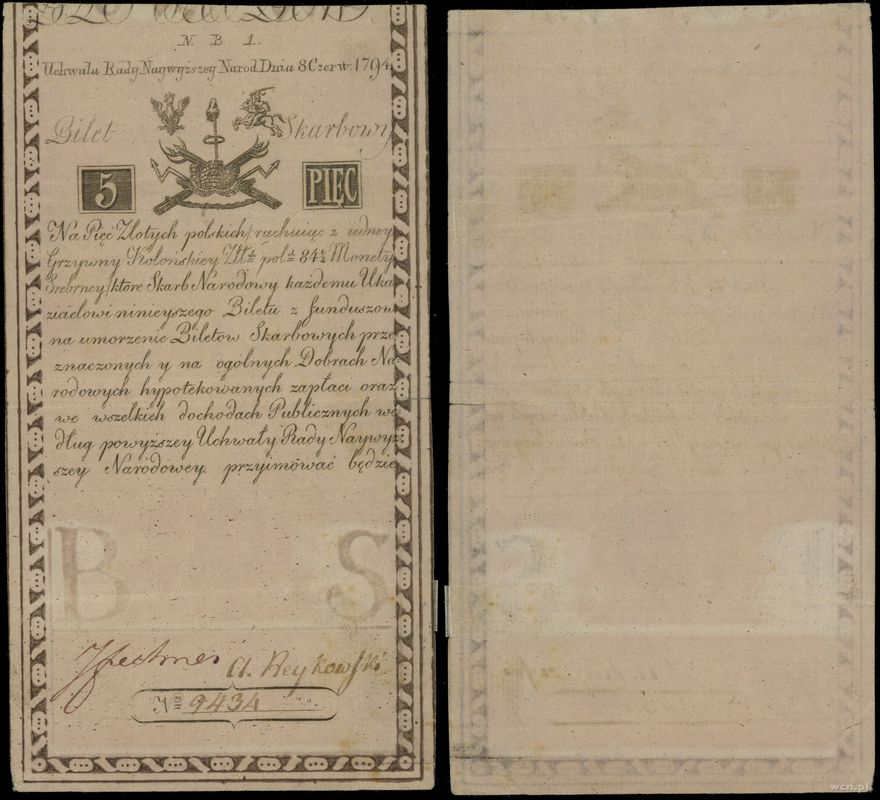 N. B. 1.
Uchwała Rady Naywyższey Narod. Dnia 8 Czerw. 1794
Bilet Skarbowy
5 PIĘC
Na Pięć Złotych polskich/rachuiąc z iedney
Grzywny Kolonskiey Złł: pol: 84½ Monety
Srebrney/które Skarb Narodowy każdemu Uka
zicielowi ninieyszego Biletu z funduszow
na umorzenie Biletow Skarbowych prze
znaczonych y na ogólnych Dobrach Na
rodowych hypotekowanych zapłaci oraz
we wszelkich dochodach Publicznych we
dług powyższey Uchwały Rady Naywyż
szey Narodowey przyimować będzie
B S
A. Reykowski
N 9434
wcn.pl